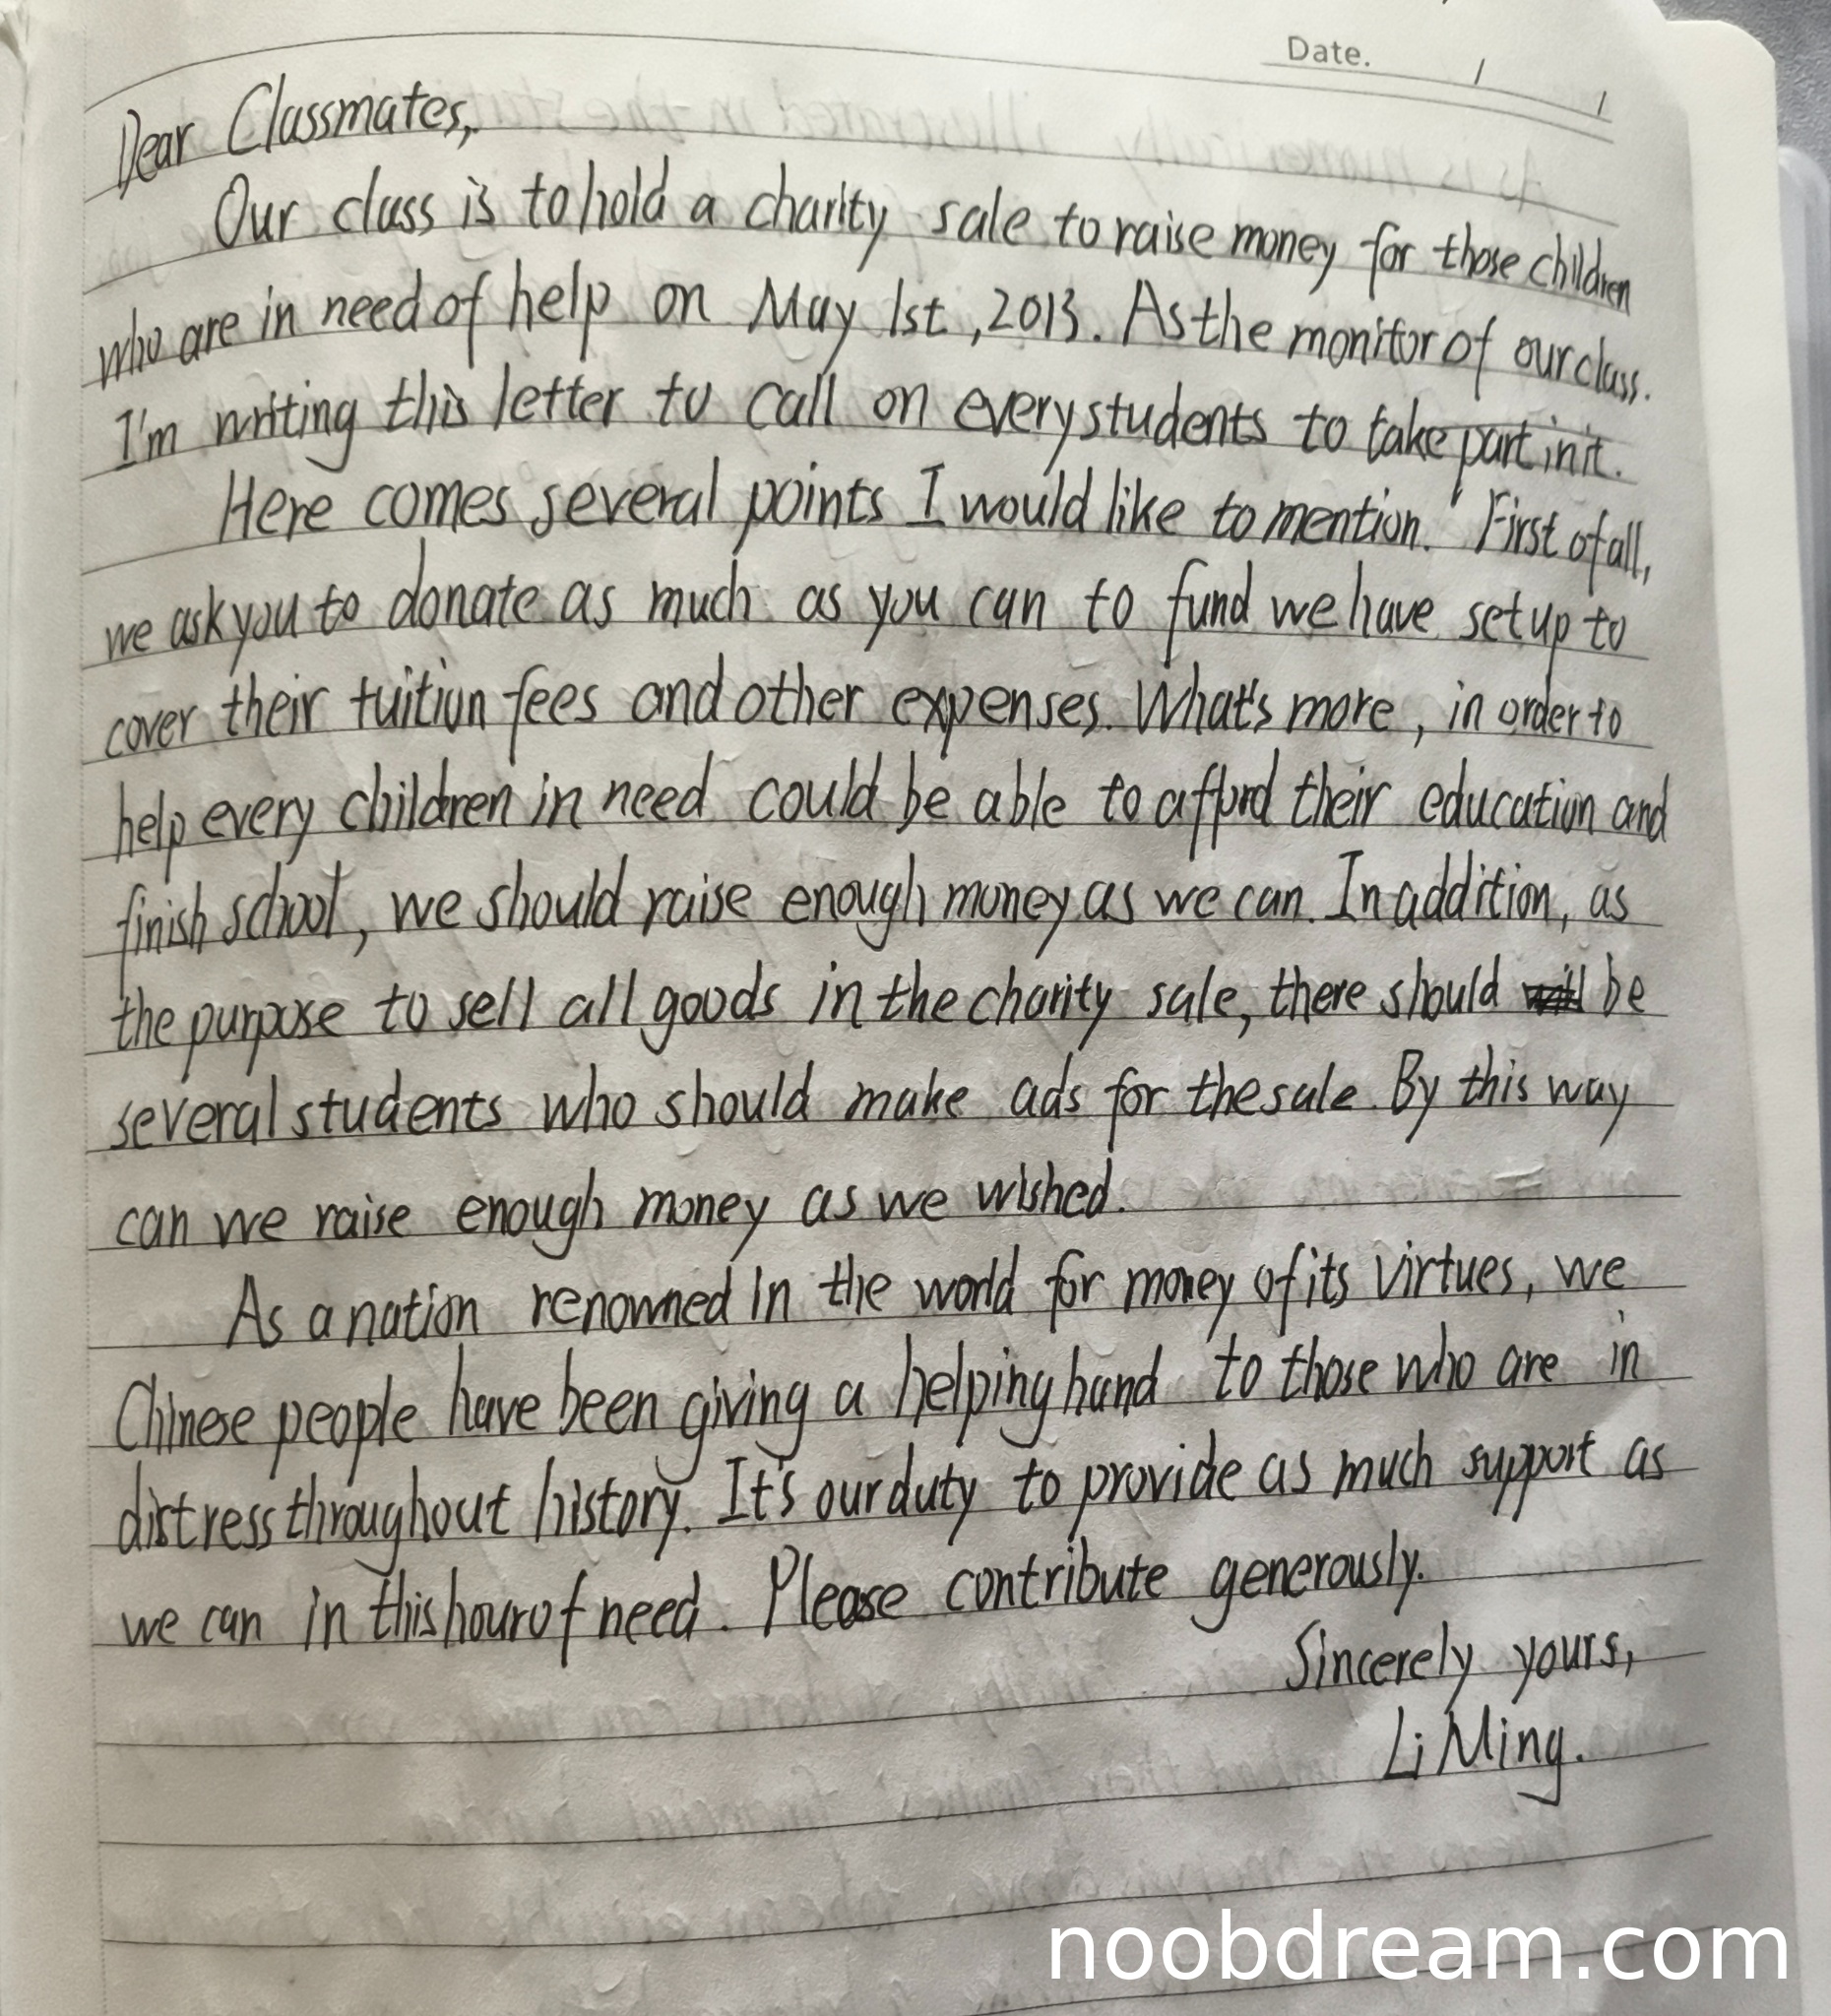 Date. / /
Dear Classmates,
Our class is to hold a charity sale to raise money for those children
who are in need of help on May 1st, 2013. As the monitor of our class.
I'm writing this letter to call on every students to take part in it.
Here comes several points I would like to mention. First of all,
we ask you to donate as much as you can to fund we have set up to
cover their tuition fees and other expenses. What's more, in order to
help every children in need could be able to afford their education and
finish school, we should raise enough money as we can. In addition, as
the purpose to sell all goods in the charity sale, there should be
several students who should make ads for the sale. By this way
can we raise enough money as we wished.
As a nation renowned in the world for money of its virtues, we
Chinese people have been giving a helping hand to those who are in
distress throughout history. It's our duty to provide as much support as
we can in this hour of need. Please contribute generously.
Sincerely yours,
Li Ming.
noobdream.com